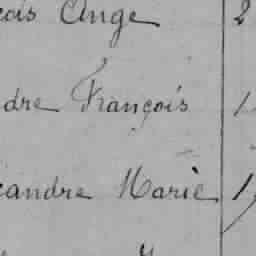 çois Ange 2
dre François 1
andre Marie 1